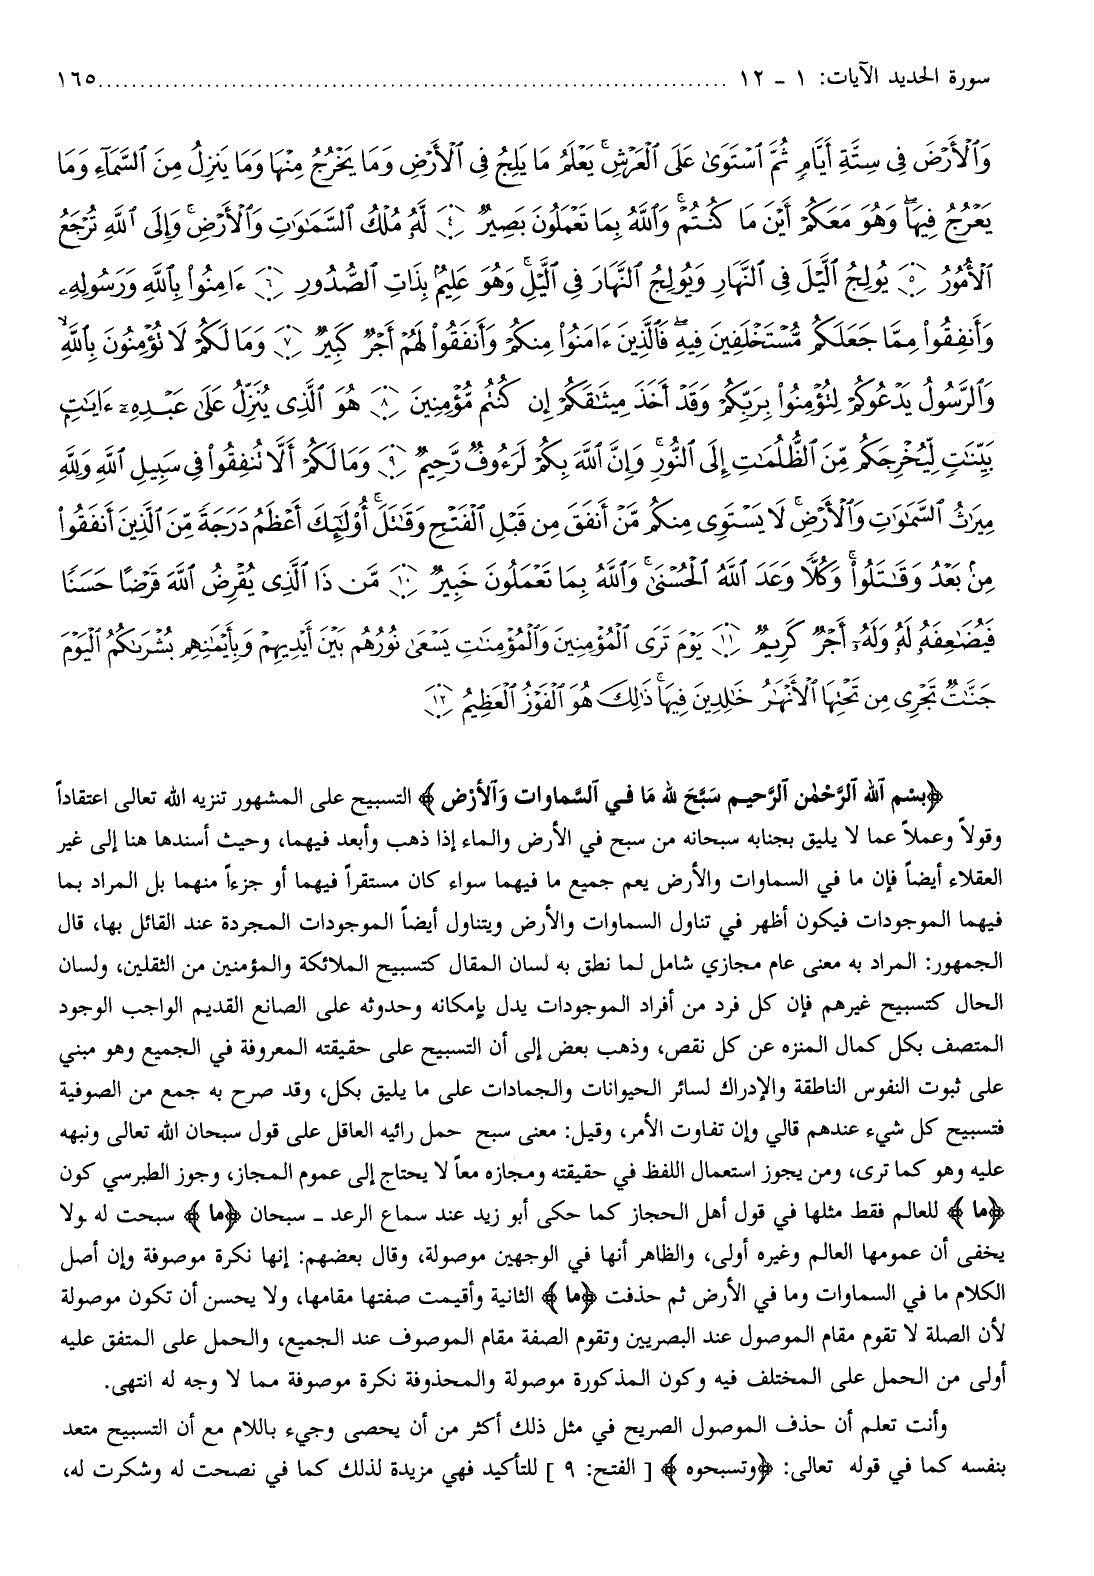 سورة الحديد الآيات: ١ ـ ١٢ ........................................................................ ١٦٥
وَٱلْأَرْضَ فِى سِتَّةِ أَيَّامٍ ثُمَّ ٱسْتَوَىٰ عَلَى ٱلْعَرْشِ ۚ يَعْلَمُ مَا يَلِجُ فِى ٱلْأَرْضِ وَمَا يَخْرُجُ مِنْهَا وَمَا يَنزِلُ مِنَ ٱلسَّمَآءِ وَمَا
يَعْرُجُ فِيهَا ۖ وَهُوَ مَعَكُمْ أَيْنَ مَا كُنتُمْ ۚ وَٱللَّهُ بِمَا تَعْمَلُونَ بَصِيرٌ ﴿٤﴾ لَّهُۥ مُلْكُ ٱلسَّمَٰوَٰتِ وَٱلْأَرْضِ ۚ وَإِلَى ٱللَّهِ تُرْجَعُ
ٱلْأُمُورُ ﴿٥﴾ يُولِجُ ٱلَّيْلَ فِى ٱلنَّهَارِ وَيُولِجُ ٱلنَّهَارَ فِى ٱلَّيْلِ ۚ وَهُوَ عَلِيمٌۢ بِذَاتِ ٱلصُّدُورِ ﴿٦﴾ ءَامِنُوا۟ بِٱللَّهِ وَرَسُولِهِۦ
وَأَنفِقُوا۟ مِمَّا جَعَلَكُم مُّسْتَخْلَفِينَ فِيهِ ۖ فَٱلَّذِينَ ءَامَنُوا۟ مِنكُمْ وَأَنفَقُوا۟ لَهُمْ أَجْرٌ كَبِيرٌ ﴿٧﴾ وَمَا لَكُمْ لَا تُؤْمِنُونَ بِٱللَّهِ ۙ
وَٱلرَّسُولُ يَدْعُوكُمْ لِتُؤْمِنُوا۟ بِرَبِّكُمْ وَقَدْ أَخَذَ مِيثَٰقَكُمْ إِن كُنتُم مُّؤْمِنِينَ ﴿٨﴾ هُوَ ٱلَّذِى يُنَزِّلُ عَلَىٰ عَبْدِهِۦٓ ءَايَٰتٍۭ
بَيِّنَٰتٍ لِّيُخْرِجَكُم مِّنَ ٱلظُّلُمَٰتِ إِلَى ٱلنُّورِ ۚ وَإِنَّ ٱللَّهَ بِكُمْ لَرَءُوفٌ رَّحِيمٌ ﴿٩﴾ وَمَا لَكُمْ أَلَّا تُنفِقُوا۟ فِى سَبِيلِ ٱللَّهِ وَلِلَّهِ
مِيرَٰثُ ٱلسَّمَٰوَٰتِ وَٱلْأَرْضِ ۚ لَا يَسْتَوِى مِنكُم مَّنْ أَنفَقَ مِن قَبْلِ ٱلْفَتْحِ وَقَٰتَلَ ۚ أُو۟لَٰٓئِكَ أَعْظَمُ دَرَجَةً مِّنَ ٱلَّذِينَ أَنفَقُوا۟
مِنۢ بَعْدُ وَقَٰتَلُوا۟ ۚ وَكُلًّا وَعَدَ ٱللَّهُ ٱلْحُسْنَىٰ ۚ وَٱللَّهُ بِمَا تَعْمَلُونَ خَبِيرٌ ﴿١٠﴾ مَّن ذَا ٱلَّذِى يُقْرِضُ ٱللَّهَ قَرْضًا حَسَنًا
فَيُضَٰعِفَهُۥ لَهُۥ وَلَهُۥٓ أَجْرٌ كَرِيمٌ ﴿١١﴾ يَوْمَ تَرَى ٱلْمُؤْمِنِينَ وَٱلْمُؤْمِنَٰتِ يَسْعَىٰ نُورُهُم بَيْنَ أَيْدِيهِمْ وَبِأَيْمَٰنِهِم بُشْرَىٰكُمُ ٱلْيَوْمَ
جَنَّٰتٌ تَجْرِى مِن تَحْتِهَا ٱلْأَنْهَٰرُ خَٰلِدِينَ فِيهَا ۚ ذَٰلِكَ هُوَ ٱلْفَوْزُ ٱلْعَظِيمُ ﴿١٢﴾
﴿بسْم ٱلله ٱلرَّحْمٰن ٱلرَّحيم سَبَّحَ لله مَا في ٱلسَّماوات وَٱلأرْض﴾ التسبيح على المشهور تنزيه الله تعالى اعتقاداً
وقولاً وعملاً عما لا يليق بجنابه سبحانه من سبح في الأرض والماء إذا ذهب وأبعد فيهما، وحيث أسندها هنا إلى غير
العقلاء أيضاً فإن ما في السماوات والأرض يعم جميع ما فيهما سواء كان مستقراً فيهما أو جزءاً منهما بل المراد بما
فيهما الموجودات فيكون أظهر في تناول السماوات والأرض ويتناول أيضاً الموجودات المجردة عند القائل بها، قال
الجمهور: المراد به معنى عام مجازي شامل لما نطق به لسان المقال كتسبيح الملائكة والمؤمنين من الثقلين، ولسان
الحال كتسبيح غيرهم فإن كل فرد من أفراد الموجودات يدل بإمكانه وحدوثه على الصانع القديم الواجب الوجود
المتصف بكل كمال المنزه عن كل نقص، وذهب بعض إلى أن التسبيح على حقيقته المعروفة في الجميع وهو مبني
على ثبوت النفوس الناطقة والإدراك لسائر الحيوانات والجمادات على ما يليق بكل، وقد صرح به جمع من الصوفية
فتسبيح كل شيء عندهم قالي وإن تفاوت الأمر، وقيل: معنى سبح حمل رائيه العاقل على قول سبحان الله تعالى ونبهه
عليه وهو كما ترى، ومن يجوز استعمال اللفظ في حقيقته ومجازه معاً لا يحتاج إلى عموم المجاز، وجوز الطبرسي كون
﴿ما﴾ للعالم فقط مثلها في قول أهل الحجاز كما حكى أبو زيد عند سماع الرعد ـ سبحان ﴿ما﴾ سبحت له ـ ولا
يخفى أن عمومها العالم وغيره أولى، والظاهر أنها في الوجهين موصولة، وقال بعضهم: إنها نكرة موصوفة وإن أصل
الكلام ما في السماوات وما في الأرض ثم حذفت ﴿ما﴾ الثانية وأقيمت صفتها مقامها، ولا يحسن أن تكون موصولة
لأن الصلة لا تقوم مقام الموصول عند البصريين وتقوم الصفة مقام الموصوف عند الجميع، والحمل على المتفق عليه
أولى من الحمل على المختلف فيه وكون المذكورة موصولة والمحذوفة نكرة موصوفة مما لا وجه له انتهى.
وأنت تعلم أن حذف الموصول الصريح في مثل ذلك أكثر من أن يحصى وجيء باللام مع أن التسبيح متعد
بنفسه كما في قوله تعالى: ﴿وتسبحوه﴾ [ الفتح: ٩ ] للتأكيد فهي مزيدة لذلك كما في نصحت له وشكرت له،